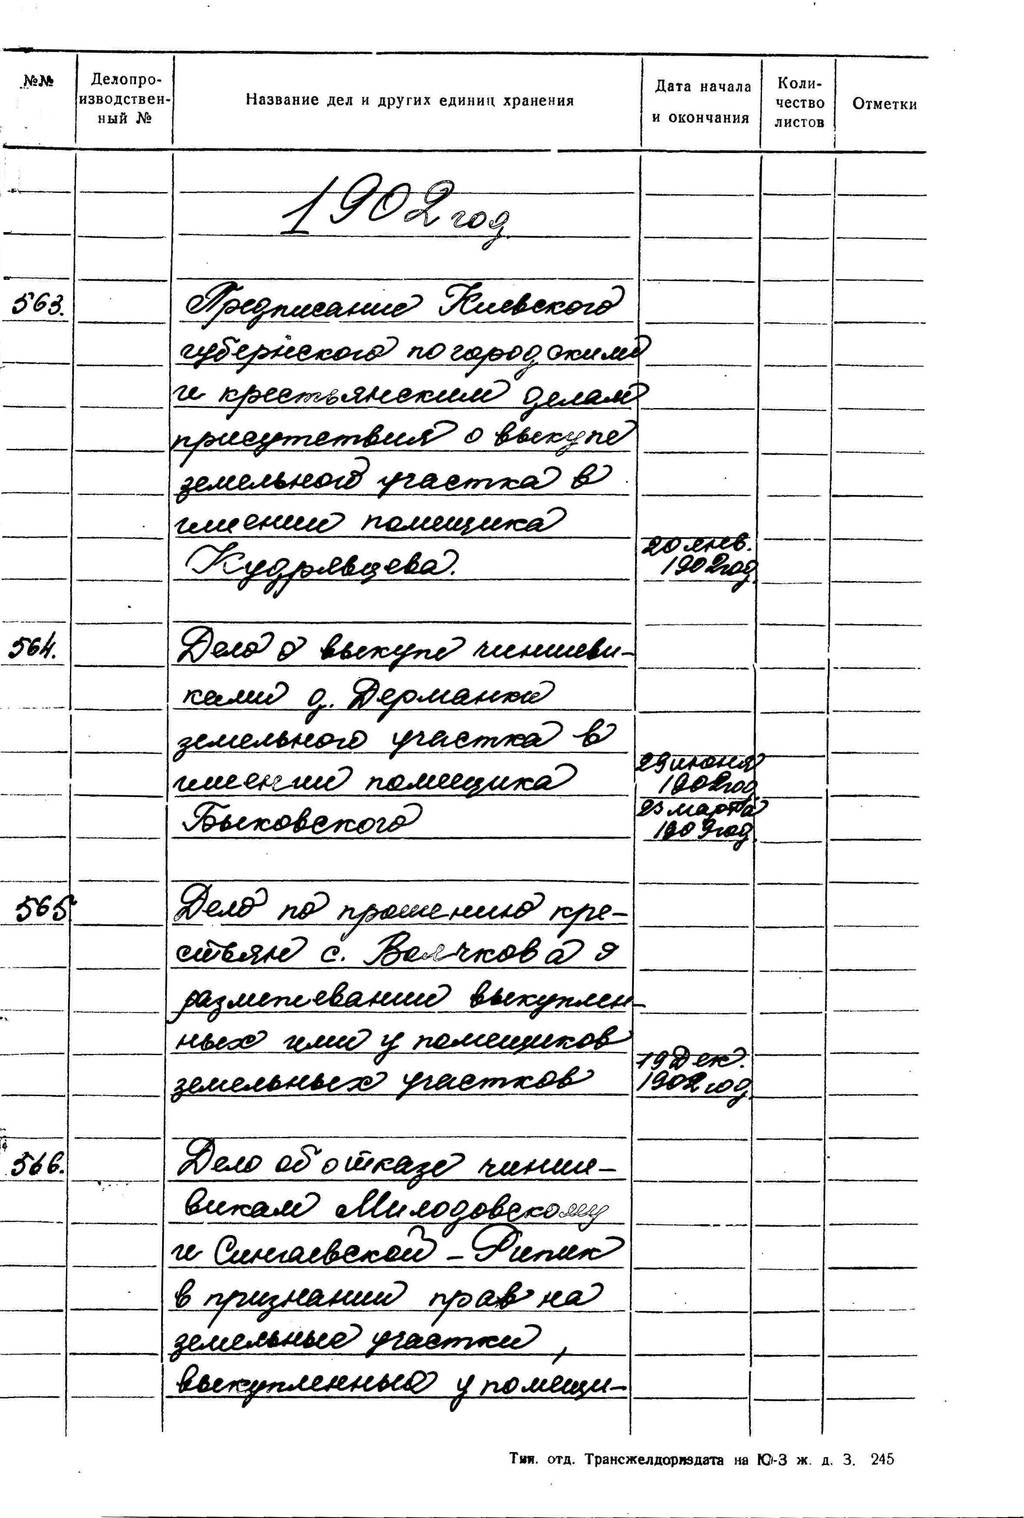 №№
Делопро-
изводствен-
ный №
Название дел и других единиц хранения
Дата начала
и окончания
Коли-
чество
листов
Отметки
1902 год
563.
Предписание Киевского
губернского по городским
и крестьянским делам
присутствия о выкупе
земельного участка в
имении помещика
Кудрявцева.
20 янв.
1902 год
564.
Дело о выкупе чиншеви-
ками д. Дерманки
земельного участка в
имении помещика
Быковского
29 июня
1902 год
23 марта
1909 год
565
Дело по прошению кре-
стьян с. Волчкова о
размежевании выкуплен-
ных ими у помещиков
земельных участков
19 Дек.
1902 год
566.
Дело об отказе чинше-
викам Милодовскому
и Сингаевской - Рипик
в признании прав на
земельные участки,
выкупленные у помещи-
Тип. отд. Трансжелдориздата на Ю-З ж. д. З. 245